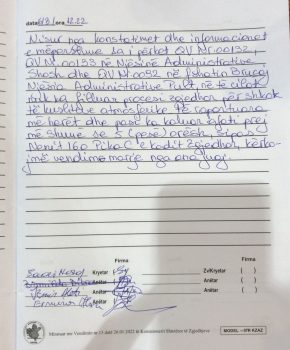 data 6/3/ ora 12.22
Nisur nga konstatimet dhe informacionet
e mëparshme sa i përket QV Nr. 00132,
QV Nr. 00133 në Njësinë Administrative
Shosh dhe QV Nr. 0092 në fshatin Brucaj
Njësia Administrative Pult, në të cilat
nuk ka filluar procesi zgjedhor për shkak
të kushteve atmosferike të raportuara
më herët dhe pasi ka kaluar afati prej
më shumë se 5 (pesë) orësh, sipas
Nenit 160 Pika C e kodit Zgjedhor, kërko-
jmë vendimmarrje nga ana juaj.
Firma Firma
Kryetar ( ) Zv/Kryetar ( )
Anëtar ( ) Anëtar ( )
Anëtar ( ) Anëtar ( )
Anëtar ( )
Miratuar me Vendimin nr 15 datë 26.01.2022 të Komisionerit Shtetëror të Zgjedhjeve
MODEL – 07R KZAZ